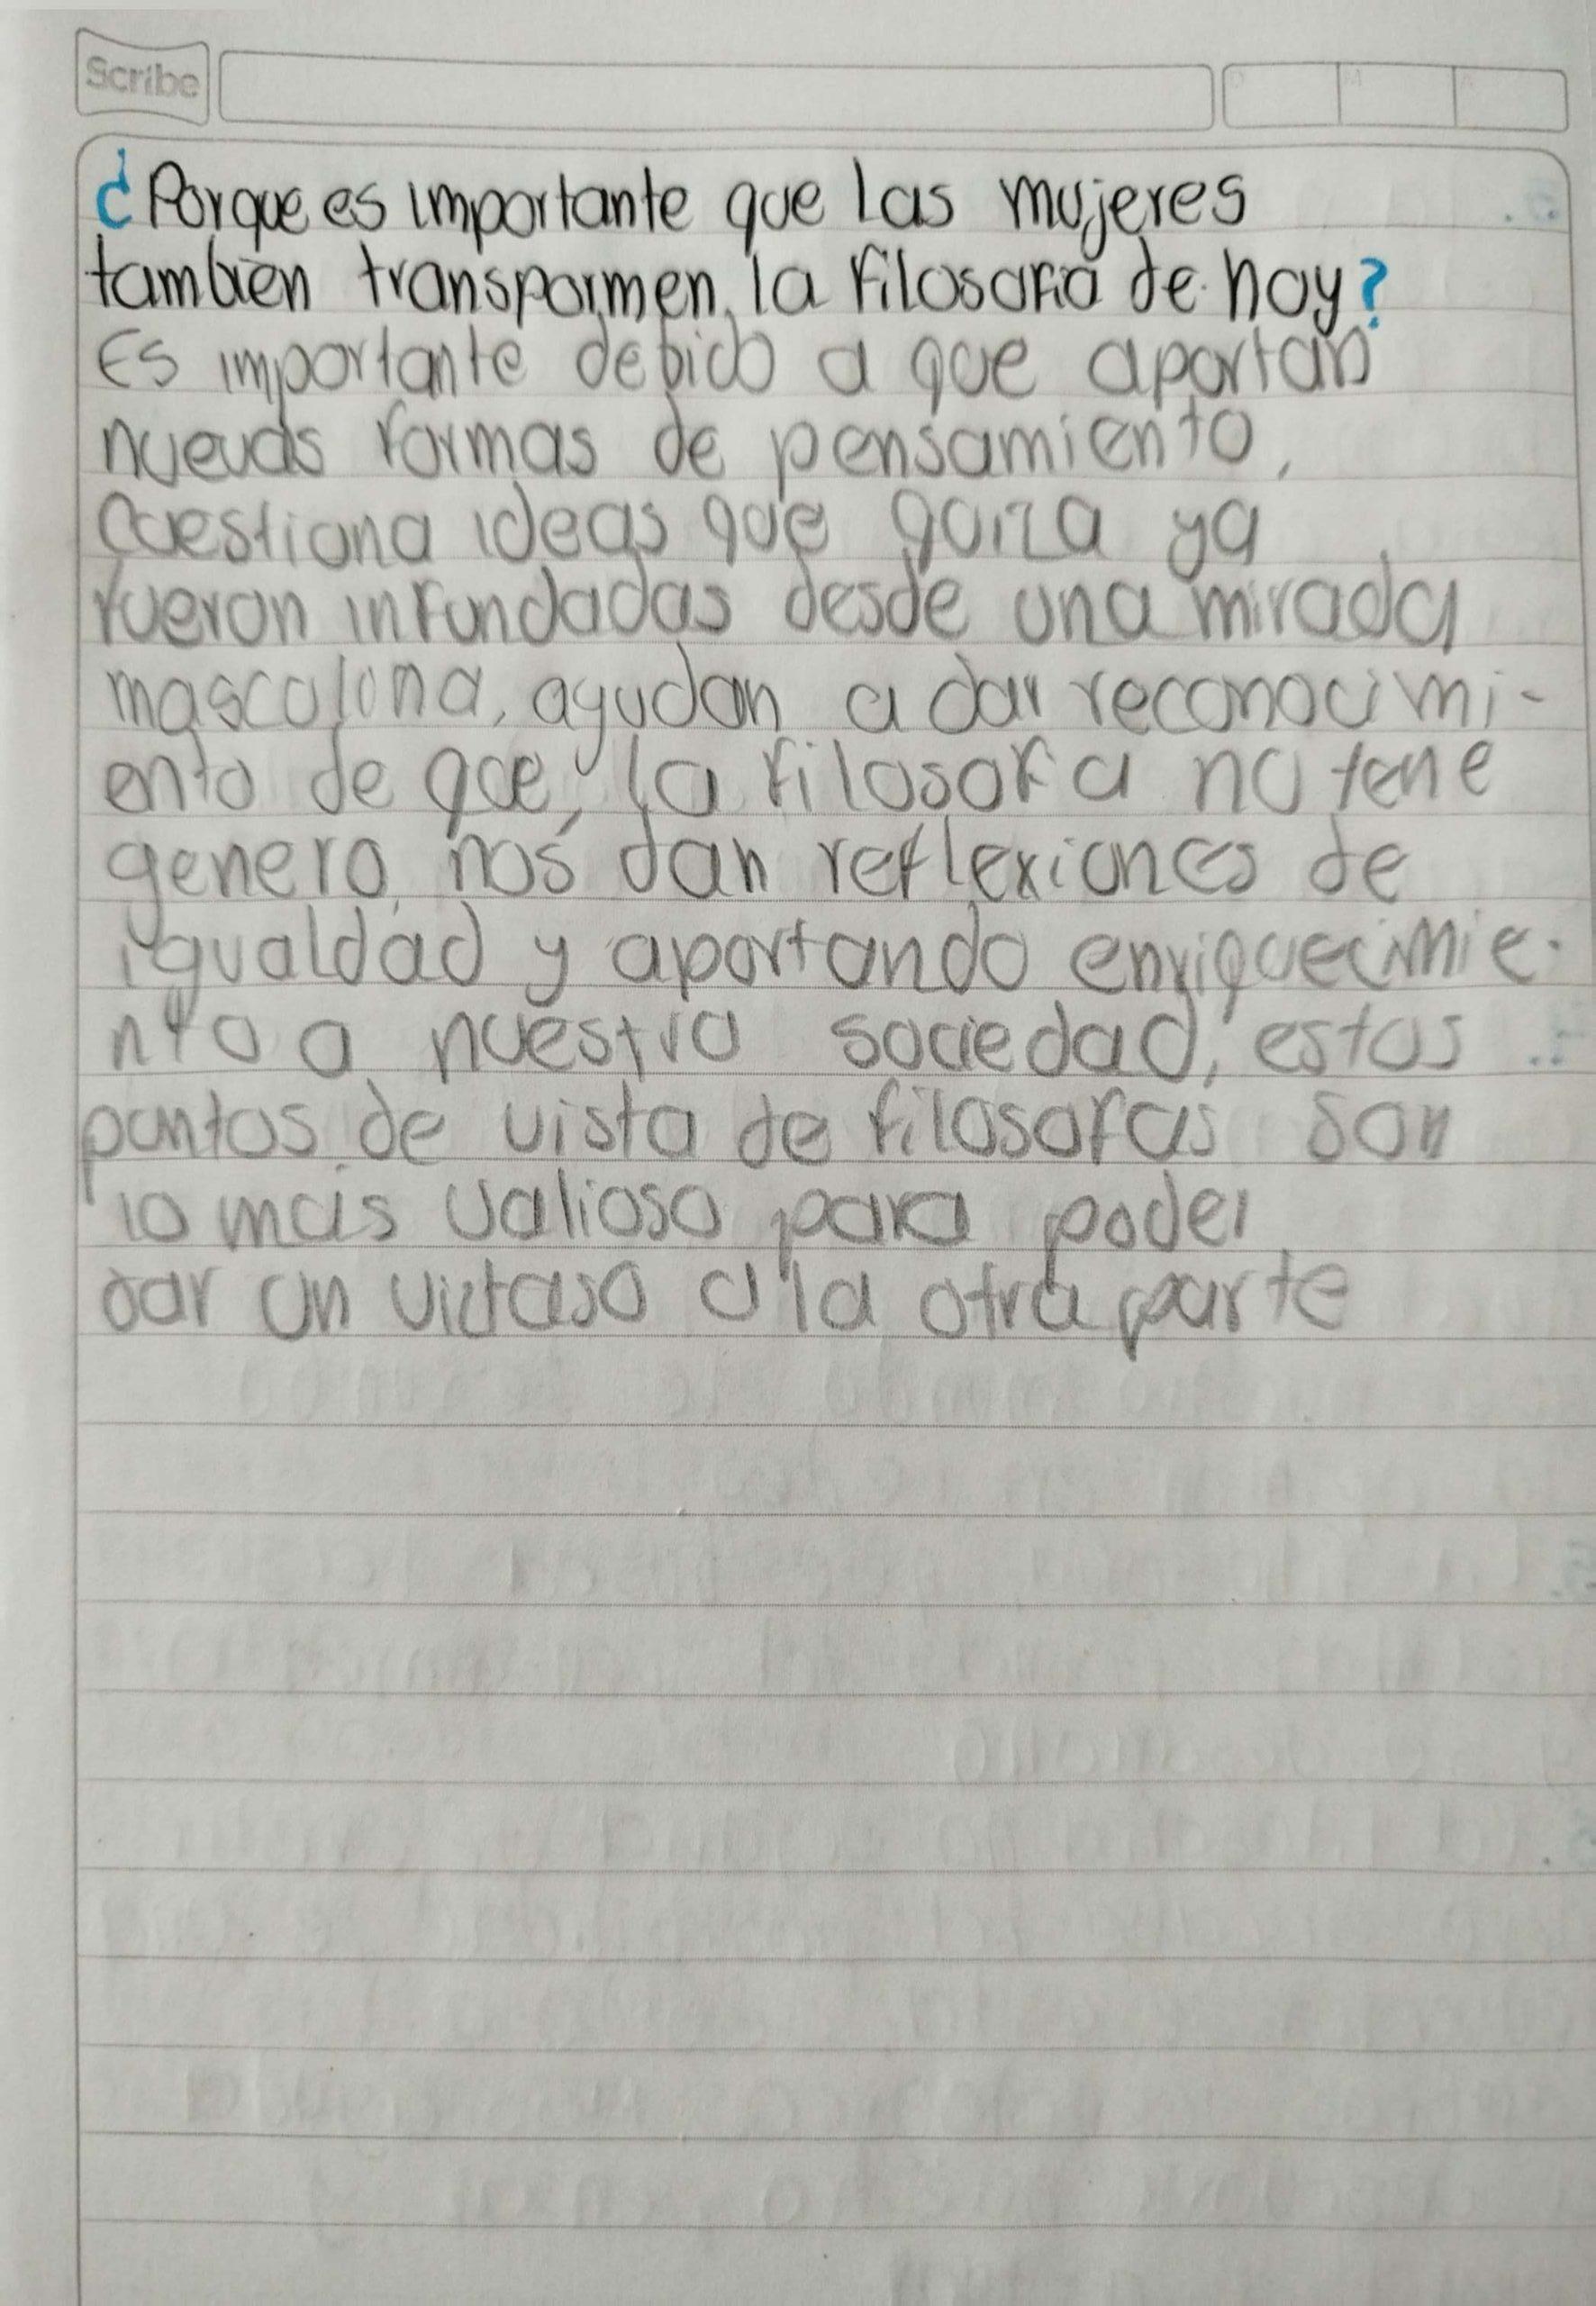 Scribe
¿Porque es importante que las mujeres
tambien transpormen, la filosofia de hoy?
Es importante debido a que aportan
nuevas formas de pensamiento,
cuestiona ideas que quiza ya
fueron infundadas desde una mirada
masculina, ayudan a dar reconocimi-
ento de que, la filosofa no tene
genero, nos dan reflexiones de
igualdad y aportando enriquecimie-
nto a nuestra sociedad, estos
puntos de vista de filosofas son
lo mas valioso para poder
dar un victaso a la otra parte